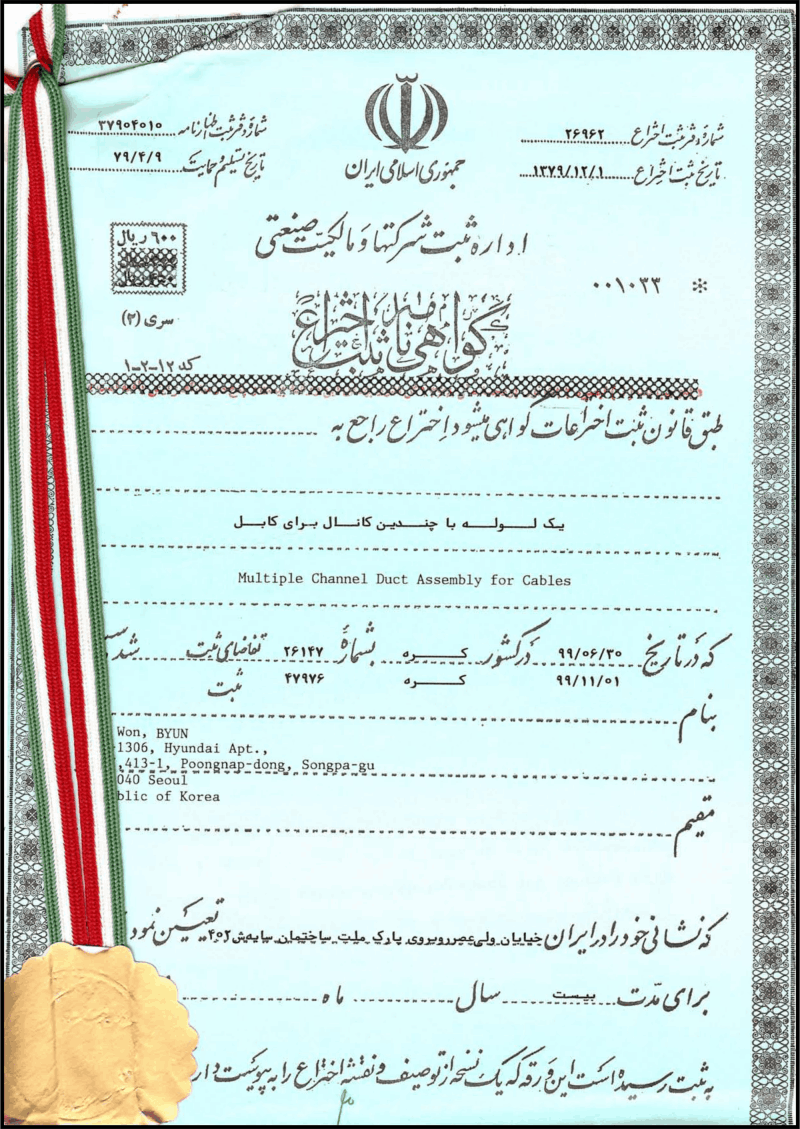 شماره دفتر ثبت اختراع ۲۶۹۶۲
تاریخ ثبت اختراع ۱۳۷۹/۱۲/۱
جمهوری اسلامی ایران
شماره دفتر ثبت اظهارنامه ۳۷۹۰۴۰۱۰
تاریخ تسلیم و حمایت ۷۹/۴/۹
اداره ثبت شرکتها و مالکیت صنعتی
۶۰۰ ریال
* ۰۰۱۰۳۳
سری (۳)
گواهی نامه ثبت اختراع
کد ۱۲-۲-۱
طبق قانون ثبت اختراعات گواهی میشود اختراع راجع به
یک لوله با چندین کانال برای کابل
Multiple Channel Duct Assembly for Cables
که در تاریخ ۹۹/۰۶/۳۰ در کشور کره بشماره ۲۶۱۴۷ تقاضای ثبت شده
۹۹/۱۱/۰۱ کره ۴۷۹۷۶ ثبت
بنام
Won, BYUN
1306, Hyundai Apt.,
,413-1, Poongnap-dong, Songpa-gu
040 Seoul
blic of Korea
مقیم
که نشانی خود را در ایران خیابان ولی عصر روبروی پارک ملت ساختمان سایه ش ۴۰۲ تعیین نمود
برای مدت بیست سال ماه
به ثبت رسیده است این ورقه که یک نسخه از توصیف و نقشه اختراع را به پیوست دار